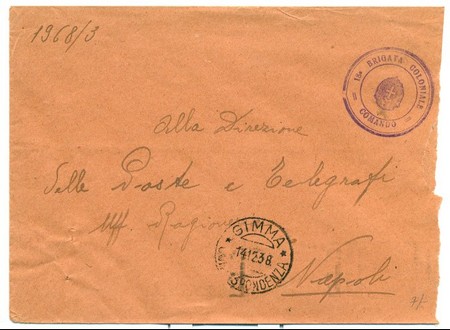 1968/3
18ª BRIGATA COLONIALE
COMANDO
Alla Direzione
delle Poste e Telegrafi
Uff. Ragione
GIMMA
14.12.38
CORRISPONDENZA
Napoli